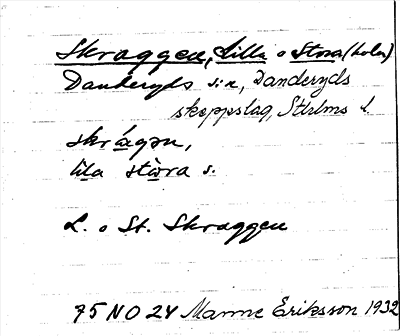 Skraggen, Lilla o Stora (holm)
Danderyds s:n, Danderyds
skeppslag, Sthlms l.
skrágən,
lila stòra s.
L. o St. Skraggen
75 NO 24 Manne Eriksson 1932